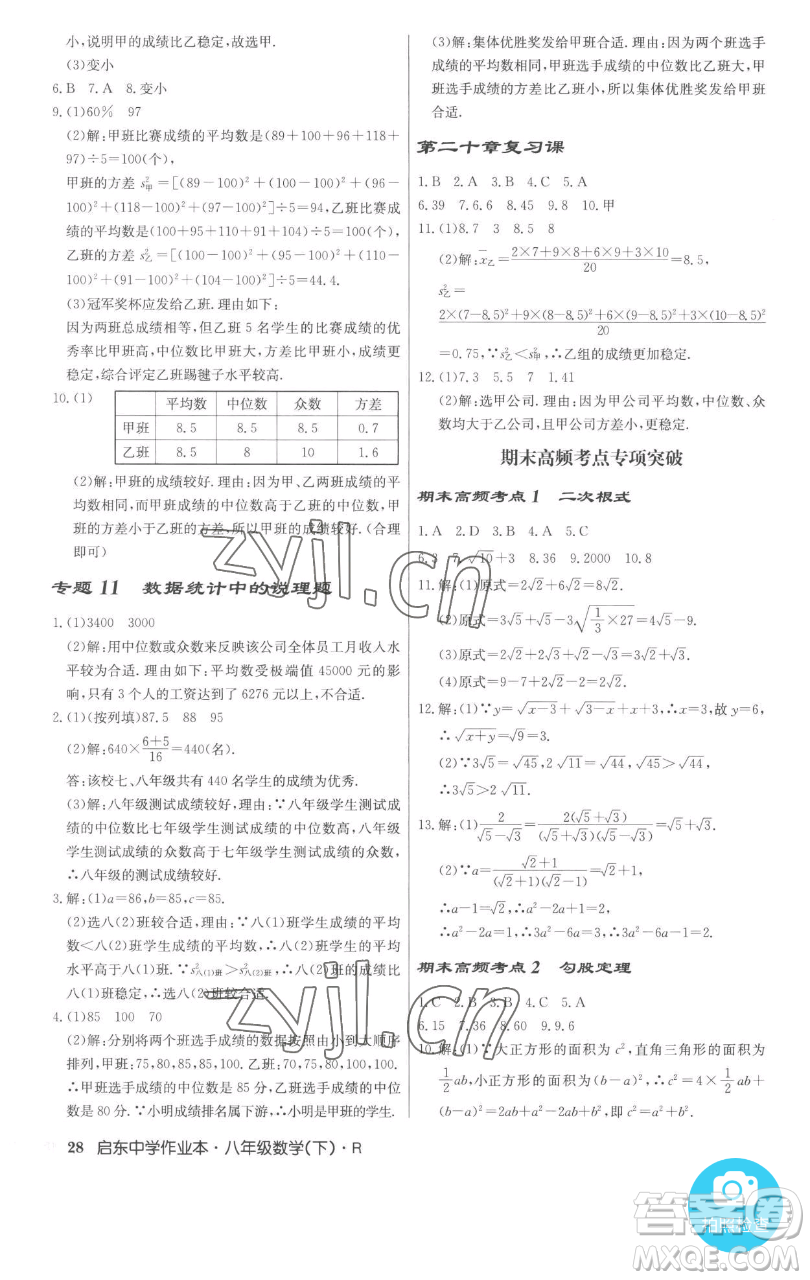 小,说明甲的成绩比乙稳定,故选甲.
(3)变小
6.B 7.A 8.变小
9.(1)60% 97
(2)解:甲班比赛成绩的平均数是(89+100+96+118+
97)÷5=100(个),
甲班的方差 s²甲=[(89-100)²+(100-100)²+(96-
100)²+(118-100)²+(97-100)²]÷5=94,乙班比赛成
绩的平均数是(100+95+110+91+104)÷5=100(个),
乙班的方差 s²乙=[(100-100)²+(95-100)²+(110-
100)²+(91-100)²+(104-100)²]÷5=44.4.
(3)冠军奖杯应发给乙班.理由如下:
因为两班总成绩相等,但乙班 5 名学生的比赛成绩的优
秀率比甲班高,中位数比甲班大,方差比甲班小,成绩更
稳定,综合评定乙班踢毽子水平较高.
10.(1)
平均数 中位数 众数 方差
甲班 8.5 8.5 8.5 0.7
乙班 8.5 8 10 1.6
(2)解:甲班的成绩较好.理由:因为甲、乙两班成绩的
平均数相同,甲班成绩的中位数高于乙班的中位数,甲
班的方差小于乙班的方差,所以甲班的成绩较好.(合理
即可)
专题 11 数据统计中的说理题
1.(1)3400 3000
(2)解:用中位数或众数来反映该公司全体员工月收入水
平较为合适.理由如下:平均数受极端值 45000 元的影
响,只有 3 个人的工资达到了 6276 元以上,不合适.
2.(1)(按列填)87.5 88 95
(2)解:640×(6+5)/16=440(名).
答:该校七、八年级共有 440 名学生的成绩为优秀.
(3)解:八年级测试成绩较好,理由:∵八年级学生测试成
绩的中位数比七年级学生测试成绩的中位数高,八年级
学生测试成绩的众数高于七年级学生测试成绩的众数,
∴八年级的测试成绩较好.
3.解:(1)a=86,b=85,c=85.
(2)选八(2)班较合适,理由:∵八(1)班学生成绩的平均
数<八(2)班学生成绩的平均数,∴八(2)班平均成绩
高于八(1)班.∵s²八(1)班>s²八(2)班,∴八(2)班成绩比八
(1)班稳定,∴选八(2)班较合适.
4.(1)85 100 70
(2)解:分别将两个班选手成绩的数据按照由小到大顺序
排列,甲班:75,80,85,85,100.乙班:70,75,80,100,100.
∴甲班选手成绩的中位数是 85 分,乙班选手成绩的中位
数是 80 分.∵小明成绩排名属下游,∴小明是甲班的学生.
28 启东中学作业本·八年级数学(下)·R
(3)解:集体优胜奖发给甲班合适.理由:因为两个班选手
成绩的平均数相同,甲班选手成绩的中位数比乙班大,甲
班选手成绩的方差比乙班小,所以集体优胜奖发给甲班
合适.
第二十章复习课
1.B 2.A 3.B 4.C 5.A
6.39 7.6.6 8.45 9.8 10.甲
11.(1)8.7 3 8.5 8
(2)解:x̄乙=(2×7+9×8+6×9+3×10)/20=8.5,
s²乙=
(2×(7-8.5)²+9×(8-8.5)²+6×(9-8.5)²+3×(10-8.5)²)/20
=0.75,∵s²乙<s²甲,∴乙组的成绩更加稳定.
12.(1)7.3 5.5 7 1.41
(2)解:选甲公司.理由:因为甲公司平均数,中位数、众
数均大于乙公司,且甲公司方差小,更稳定.
期末高频考点专项突破
期末高频考点 1 二次根式
1.A 2.D 3.B 4.A 5.C
6.3 7.√10+3 8.36 9.2000 10.8
11.解:(1)原式=2√2+6√2=8√2.
(2)原式=3√5+√5-3√(1/3×27)=4√5-9.
(3)原式=2√2+2√2-3√2=√2.
(4)原式=9-7+2√2-2=2√2.
12.解:(1)∵y=√(x-3)+√(3-x)+x+3,∴x=3,故 y=6,
∴√(x+y)=√9=3.
(2)∵3√5=√45,2√11=√44,√45>√44,
∴3√5>2√11.
13.解:(1)2/(√5-√3)=2(√5+√3)/((√5-√3)(√5+√3))=√5+√3.
(2)∵a=(√2+1)/((√2+1)(√2-1))=√2+1,
∴a-1=√2,∴a²-2a+1=2,
∴a²-2a=1,∴3a²-6a=3,∴3a²-6a-1=2.
期末高频考点 2 勾股定理
1.C 2.B 3.B 4.C 5.A
6.15 7.36 8.60 9.9.6
10.解:(1)∵大正方形的面积为 c²,直角三角形的面积为
1/2ab,小正方形的面积为(b-a)²,∴c²=4×1/2ab+
(b-a)²=2ab+a²-2ab+b²,即 c²=a²+b².
zyjl.cn
zyjl.cn
拍照检查
答案卷
MXQE.COM